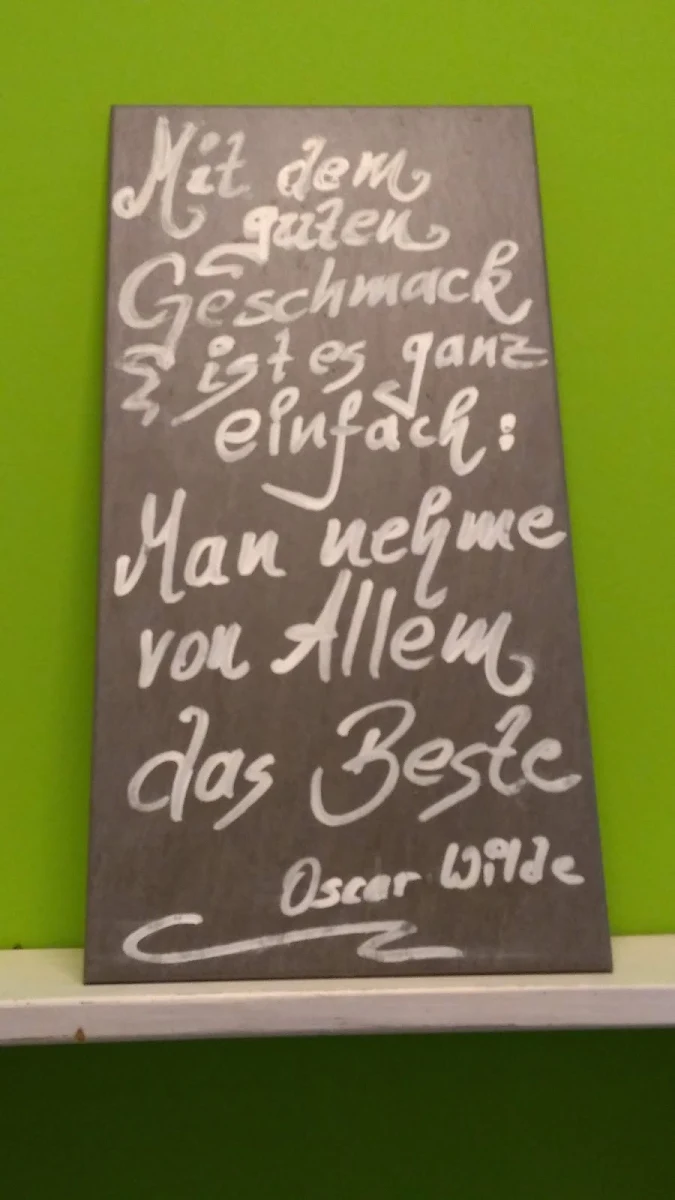 Mit dem
guten
Geschmack
ist es ganz
einfach:
Man nehme
von Allem
das Beste
Oscar Wilde